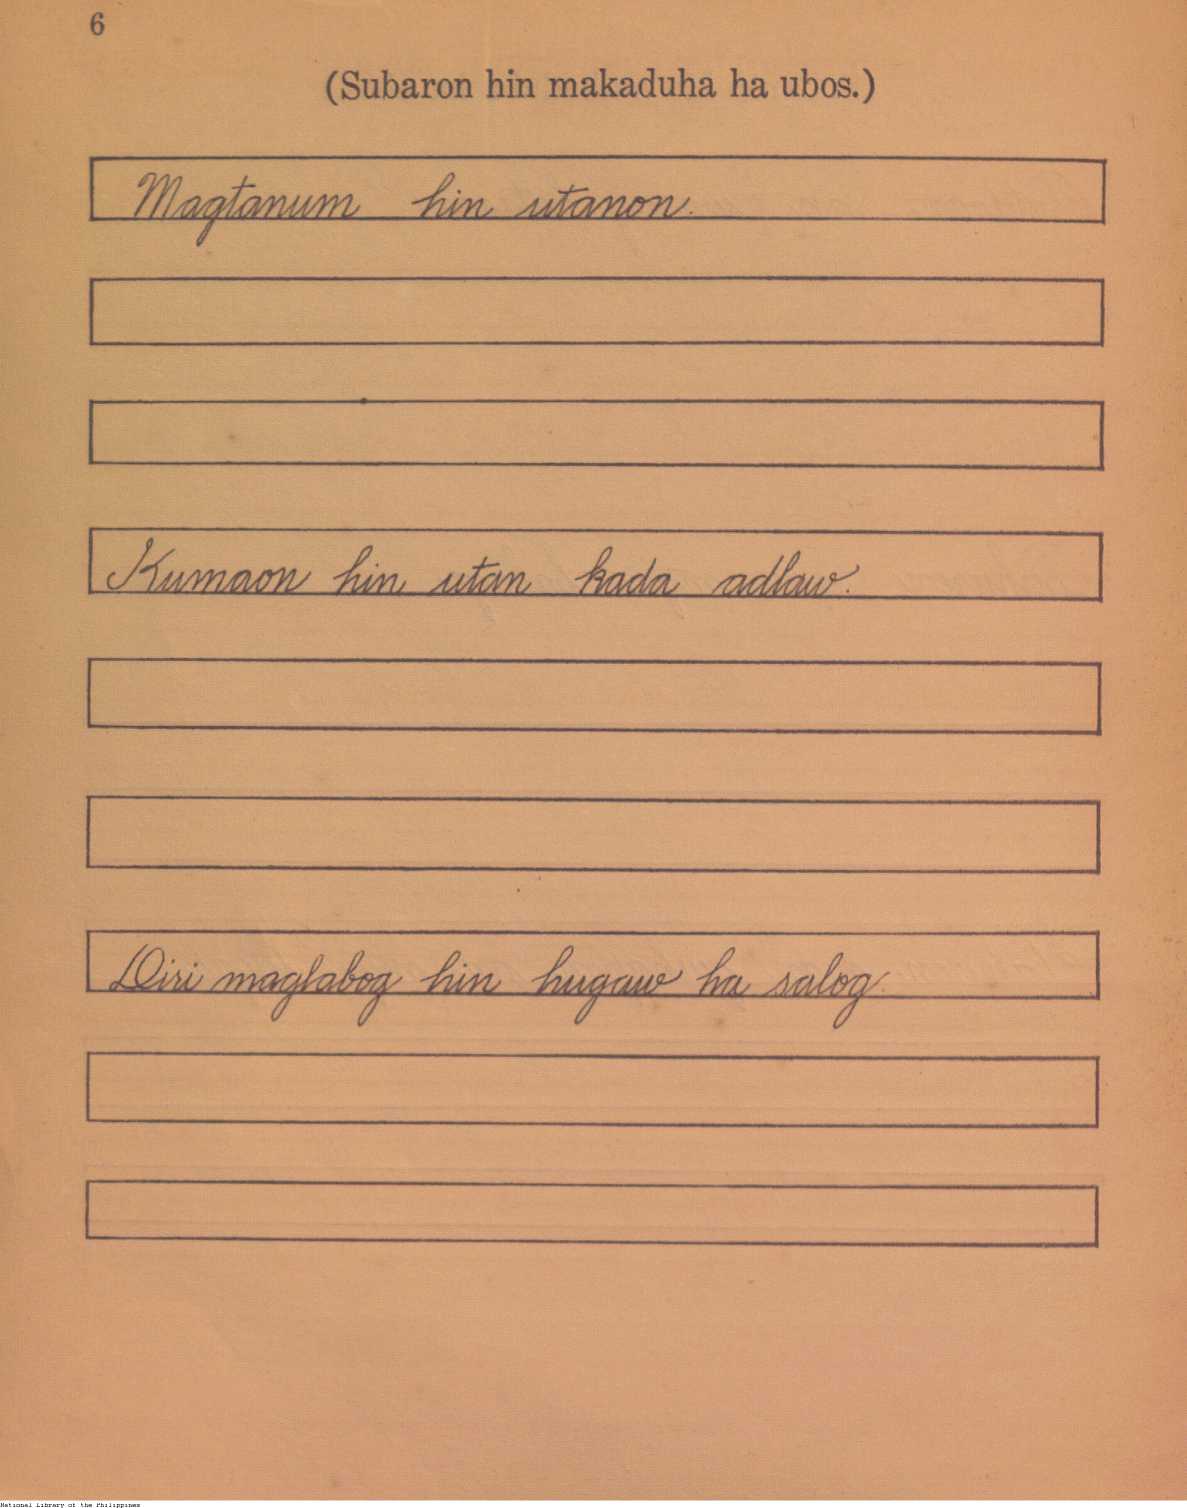 6
(Subaron hin makaduha ha ubos.)
Magtanum hin utanon.
Kumaon hin utan kada adlaw.
Diri maglabog hin hugaw ha salog.
National Library of the Philippines